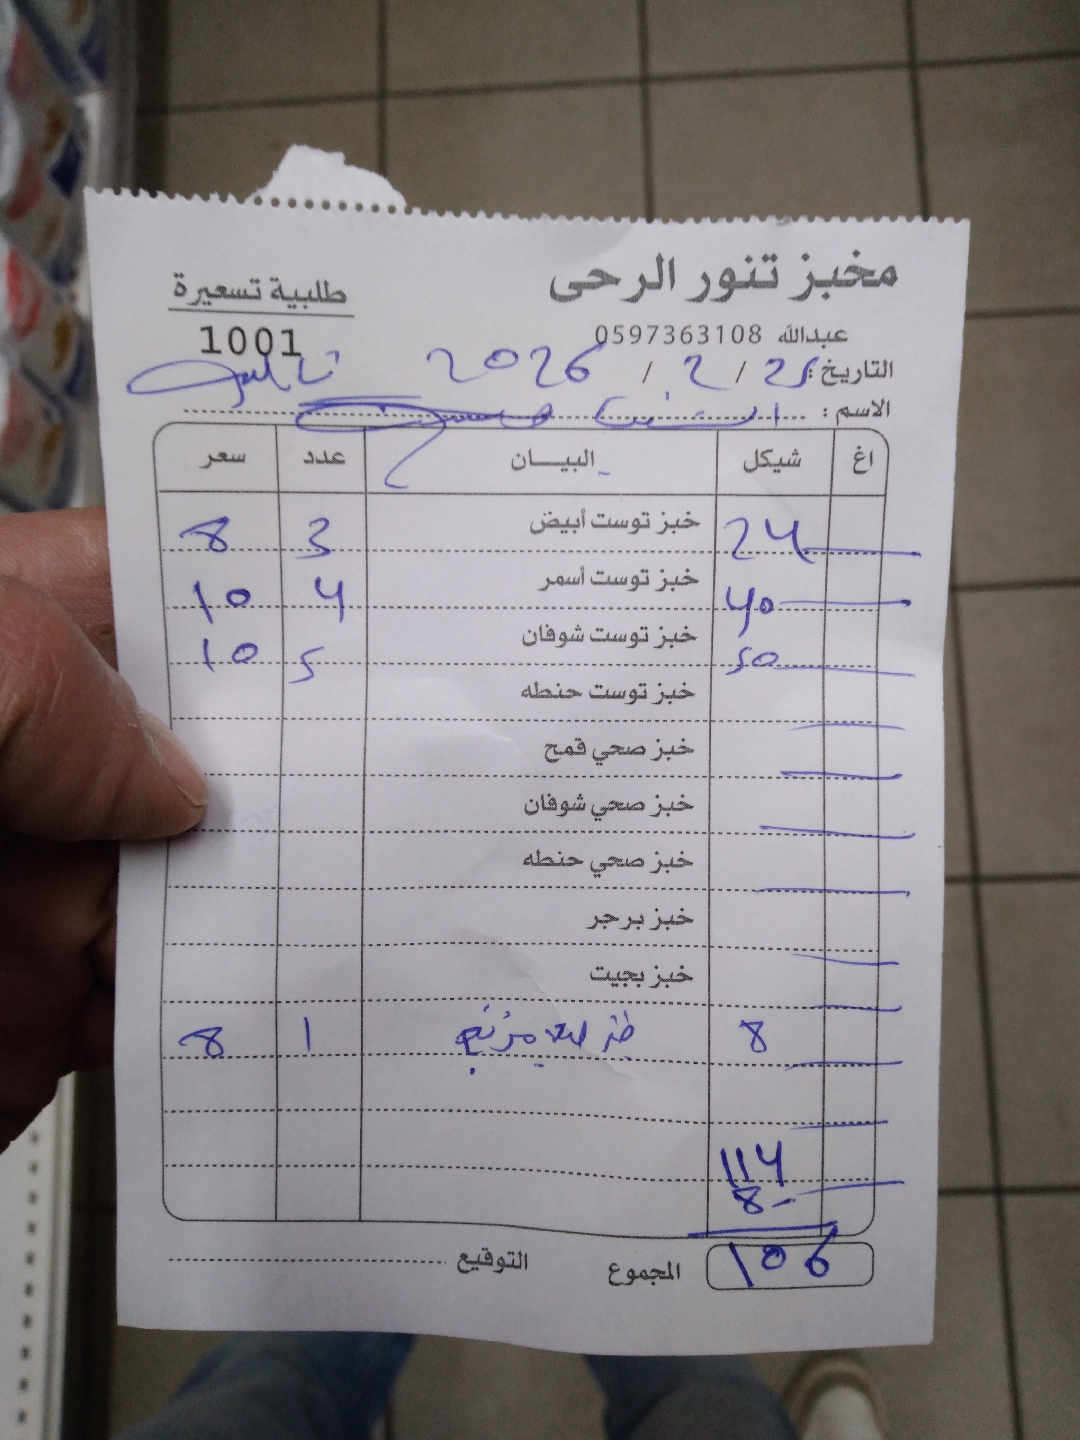 مخبز تنور الرحى
طلبية تسعيرة
عبدالله 0597363108
1001
التاريخ: 25 / 2 / 2026
الاسم :
اغ شيكل البيـــان عدد سعر
24 خبز توست أبيض 3 8
40 خبز توست أسمر 4 10
50 خبز توست شوفان 5 10
خبز توست حنطه
خبز صحي قمح
خبز صحي شوفان
خبز صحي حنطه
خبز برجر
خبز بجيت
8 1 8
114
8-
المجموع 106
التوقيع